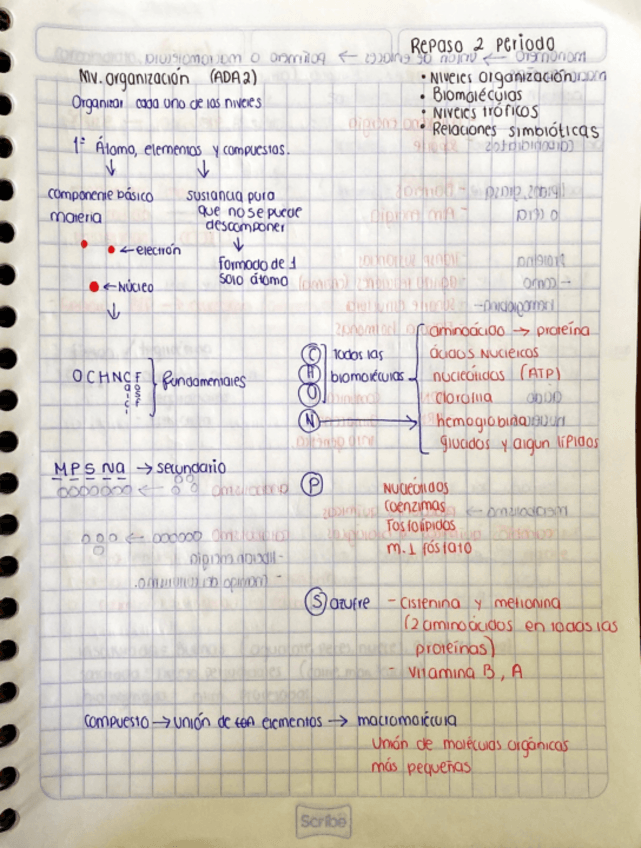 Repaso 2 Periodo
Niv. organización (ADA 2)
• Niveles organización
Organizar cada uno de los niveles
• Biomolécylas
• Niveles tróficos
• Relaciones simbióticas
1º Átomo, elementos y compuestos.
↓ ↓
componente básico
materia
sustancia pura
que no se puede
descomponer
↓
Formado de 1
solo átomo
←electrón
←Núcleo
↓
O C H N C F
fundamentales
C
H
O
N
Todos las
biomoléculas
aminoácido → proteína
ácidos Nucleicos
nucleótidos (ATP)
clorofila
hemoglobida
glucados y algun lípidos
M P S Na → secundario
P
Nucleótidos
Coenzimas
Fosfolípidos
m. 1 fósfato
S azufre
- Cistenina y metionina
(2 aminoácidos en todas las
proteínas)
- Vitamina B, A
Compuesto → unión de elementos → macromolécula
Unión de moléculas orgánicas
más pequeñas
Scribe